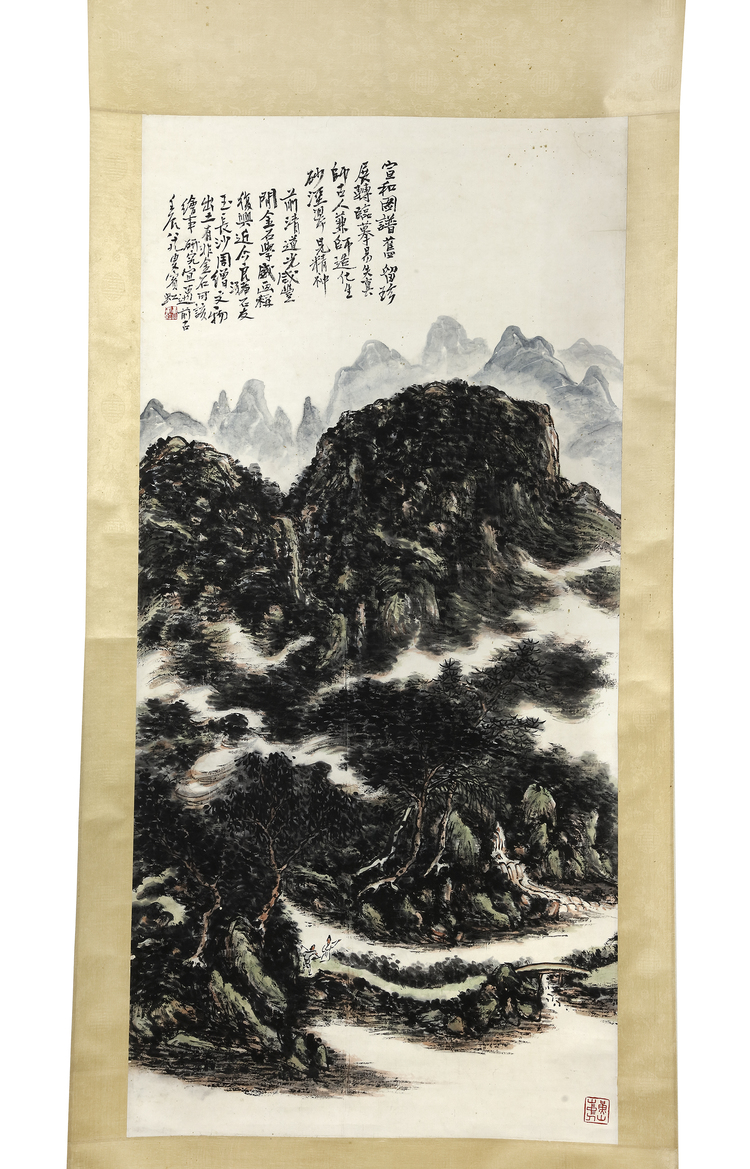 宣和国譜舊留珍
展轉臨摹易失真
師古人兼師造化
生
砂渾漫見精神
前清道光咸豐
間金石學盛画稱
復興近今良渚石友
玉長沙周繒文物
出土有非金石可該
繪事研究宜邁前古
壬辰八十九叟賓虹
黄山